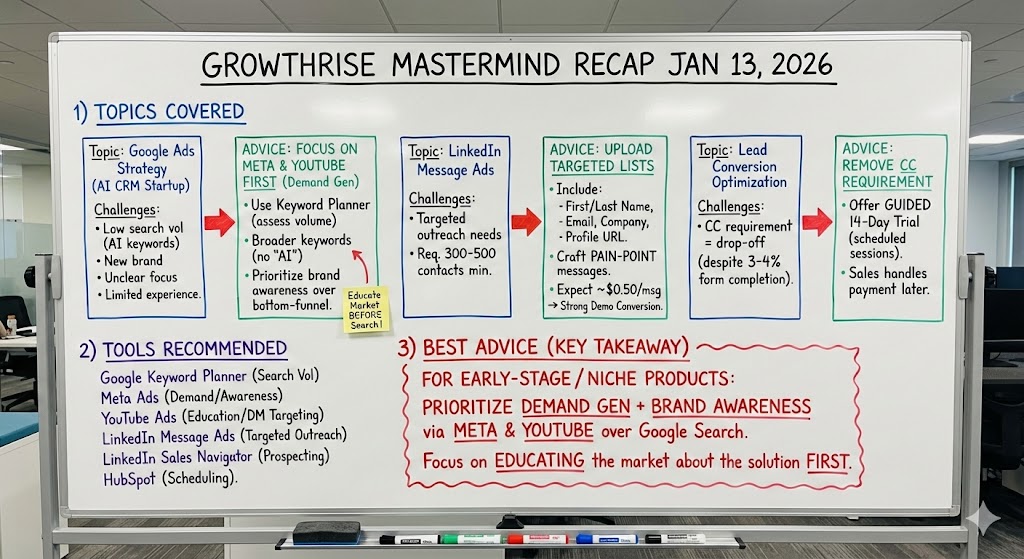 GROWTHRISE MASTERMIND RECAP JAN 13, 2026
1) TOPICS COVERED
Topic: Google Ads
Strategy
(AI CRM Startup)
Challenges:
• Low search vol
(AI keywords)
• New brand
• Unclear focus
• Limited experience.
ADVICE: FOCUS ON
META & YOUTUBE
FIRST (Demand Gen)
• Use Keyword Planner
(assess volume)
• Broader keywords
(no "AI")
• Prioritize brand
awareness over
bottom-funnel.
Educate
Market
BEFORE
Search!
Topic: LinkedIn
Message Ads
Challenges:
• Targeted
outreach needs
• Req. 300-500
contacts min.
ADVICE: UPLOAD
TARGETED LISTS
• Include:
- First/Last Name,
- Email, Company,
- Profile URL.
• Craft PAIN-POINT
messages.
• Expect ~$0.50/msg
→ Strong Demo Conversion.
Topic: Lead
Conversion
Optimization
Challenges:
• CC requirement
= drop-off
(despite 3-4%
form completion).
ADVICE:
REMOVE CC
REQUIREMENT
• Offer GUIDED
14-Day Trial
(scheduled
sessions).
• Sales handles
payment later.
2) TOOLS RECOMMENDED
Google Keyword Planner (Search Vol)
Meta Ads (Demand/Awareness)
YouTube Ads (Education/DM Targeting)
LinkedIn Message Ads (Targeted Outreach)
LinkedIn Sales Navigator (Prospecting)
HubSpot (Scheduling).
3) BEST ADVICE (KEY TAKEAWAY)
FOR EARLY-STAGE/NICHE PRODUCTS:
PRIORITIZE DEMAND GEN + BRAND AWARENESS
via META & YOUTUBE over Google Search.
Focus on EDUCATING the market about the solution FIRST.